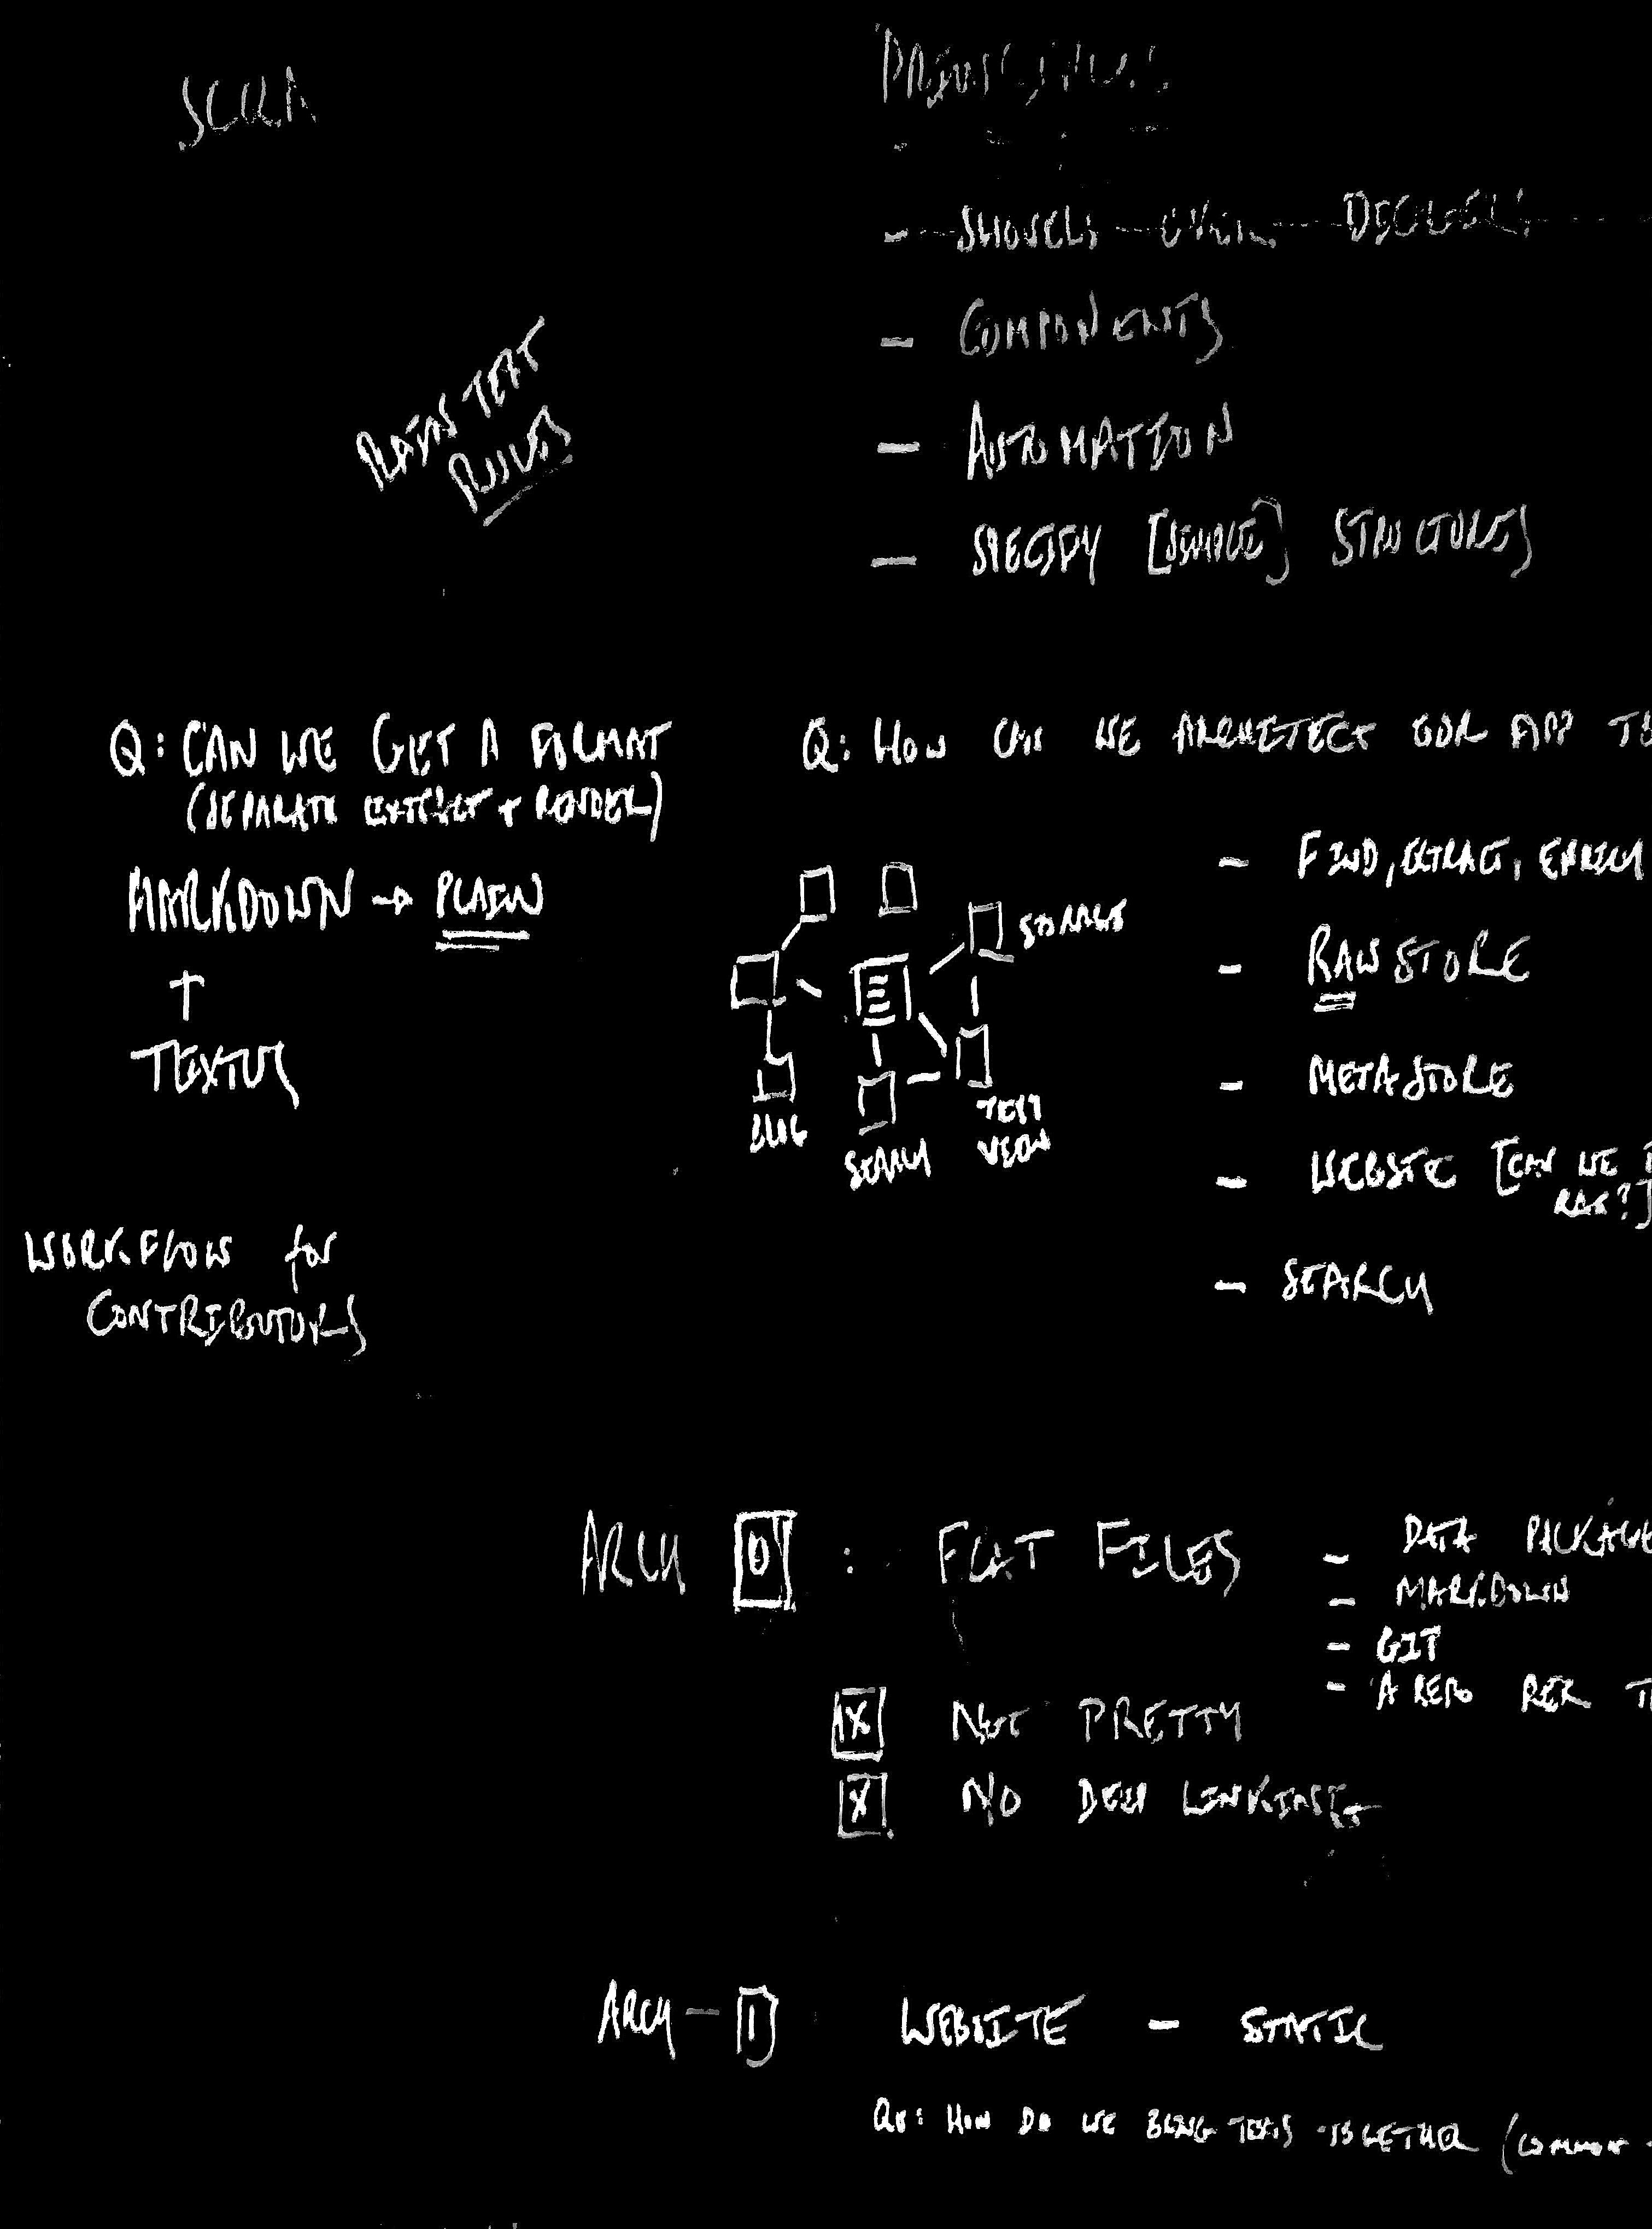 SCQA
PRINCIPLES
- SHOVELS OVER
- COMPONENTS
- AUTOMATION
- SPECIFY [SIMPLE] STRUCTURES
PLAIN TEXT
RULES
Q: CAN WE GET A FORMAT
(SEPARATE EXTRACT + RENDER)
MARKDOWN → PLAIN
↑
TEXTUS
WORKFLOW for
CONTRIBUTORS
Q: HOW CAN WE ARCHITECT OUR APP
STORAGE
BLOG
SEARCH
TEXT
VIEW
- FIND, EXTRACT, ENRICH
- RAW STORE
- METASTORE
- WEBSITE [CAN WE
- SEARCH
ARCH 0 : FLAT FILES
- DATA PACKAGE
- MARKDOWN
- GIT
- A REPO PER
X NOT PRETTY
X NO DEEP LINKING
ARCH - 1 WEBSITE - STATIC
Qu: HOW DO WE BRING TEXTS TOGETHER (COMMON